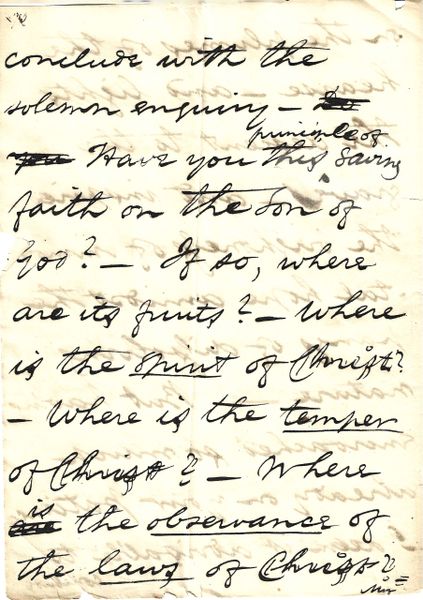 conclude with the
solemn enquiry – Do
principle of
you Have you this, saving
faith on the Son of
God? – If so, where
are its fruits? – Where
is the spirit of Christ?
– Where is the temper
of Christ? – Where
is
are the observance of
the laws of Christ?